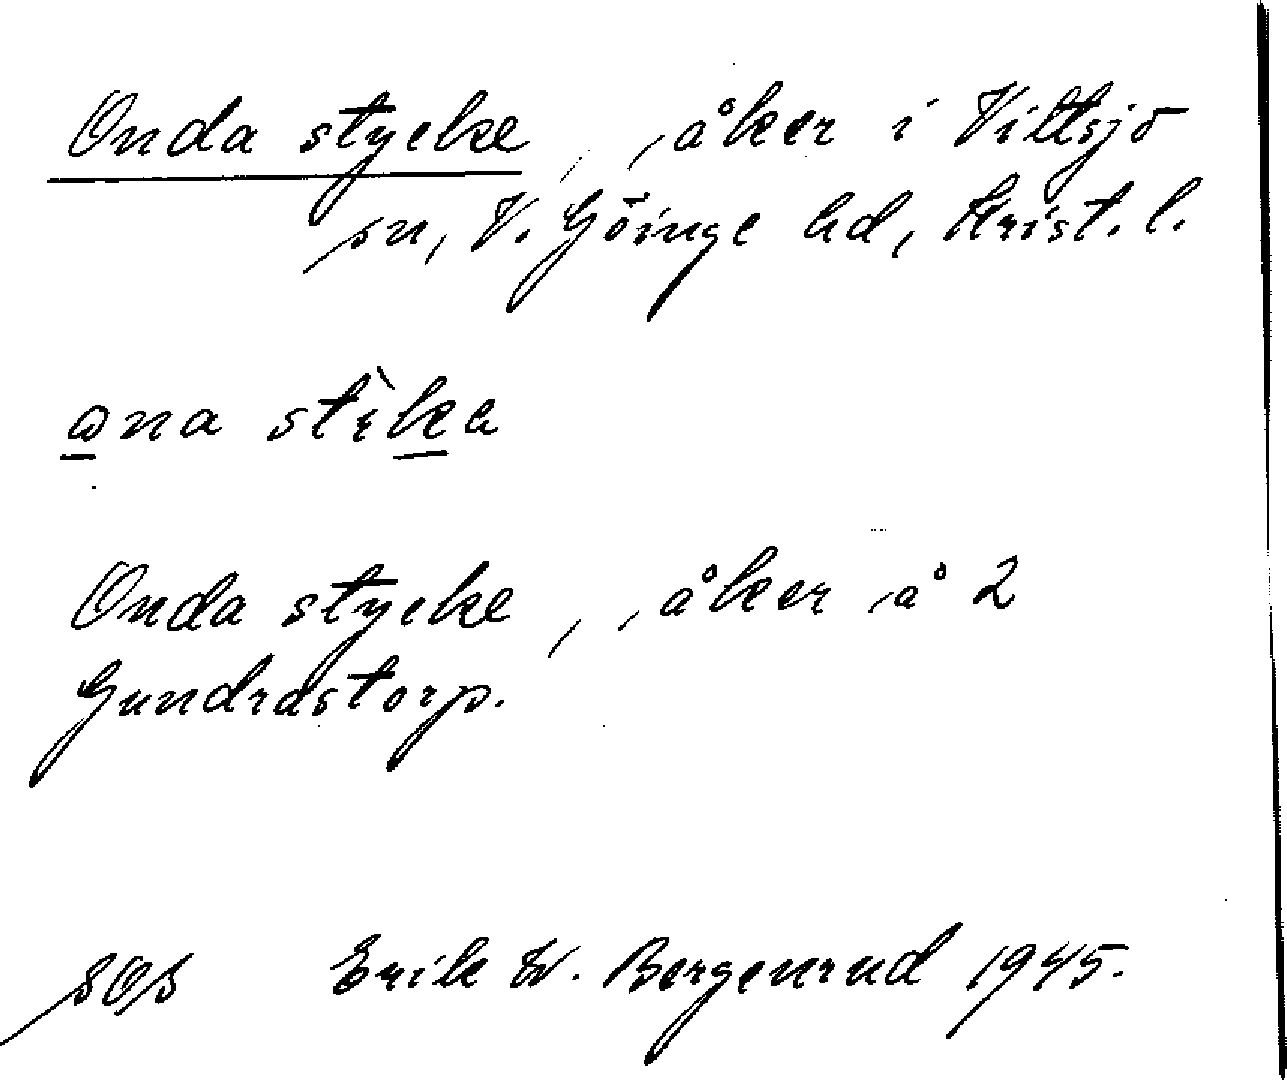 Onda stycke, , åker i Vittsjö
sn, V. Göinge hd, Krist. l.
ana stìka
Onda stycke, , åker å 2
Gundrastorp.
SOS Erik W. Bergenrud 1945.